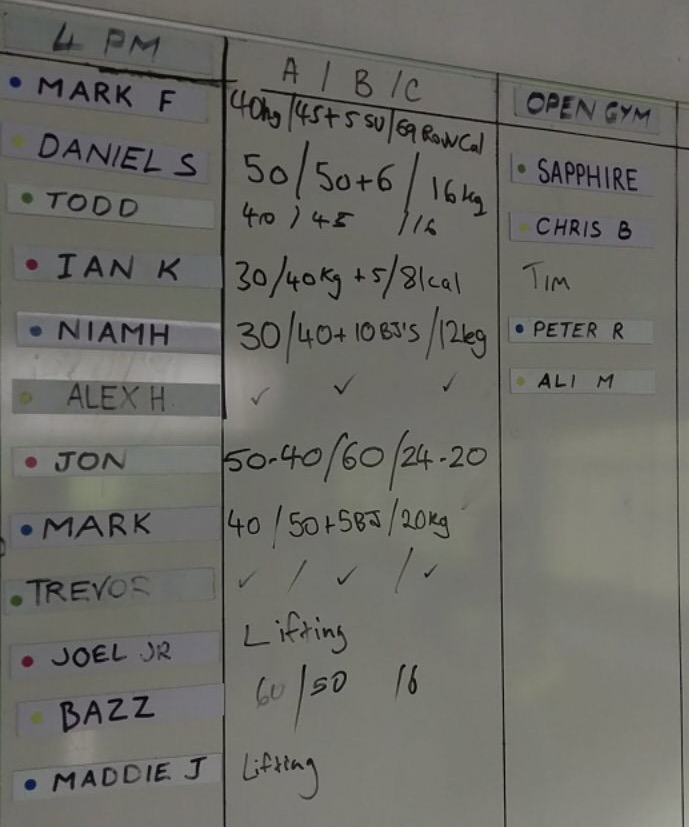 4 PM
A / B / C
OPEN GYM
MARK F 40kg / 45+5 SU / 69 Row Cal
DANIEL S 50 / 50+6 / 16kg
TODD 40 / 45 / 16
IAN K 30/40kg +5/81cal
NIAMH 30/40+10BJ'S/12kg
ALEX H ✓ ✓ ✓
JON 50-40/60/24-20
MARK 40/50+5BJ/20kg
TREVOR ✓ / ✓ / ✓
JOEL JR Lifting
BAZZ 60/50 16
MADDIE J Lifting
SAPPHIRE
CHRIS B
TIM
PETER R
ALI M